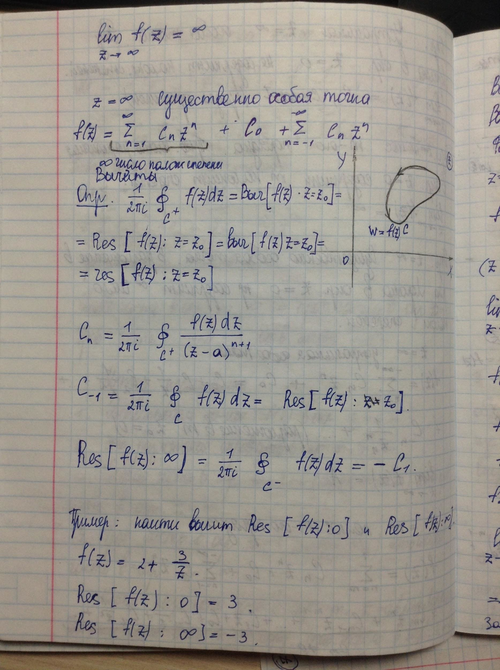 lim f(z) = ∞
z→∞
z = ∞ существенно особая точка
f(z) = ∞ Σ n=1 Cn zⁿ + C₀ + ∞ Σ n=-1 Cn zⁿ
∞ число полож степени
Вычеты
Опр. 1/2πi ∮c⁺ f(z)dz = Выч[f(z)·z=z₀] =
= Res[f(z): z=z₀] = выч[f(z) z=z₀] =
= res[f(z): z=z₀]
y
w=f(z) C
0
x
Cn = 1/2πi ∮c⁺ f(z)dz/(z-a)ⁿ⁺¹
C₋₁ = 1/2πi ∮c f(z)dz = Res[f(z): z=z₀].
Res[f(z): ∞] = 1/2πi ∮c⁻ f(z)dz = - C₁.
Пример: найти вычит Res[f(z):0] и Res[f(z):∞]
f(z) = 2+ 3/z.
Res[f(z): 0] = 3.
Res[f(z): ∞] = -3.